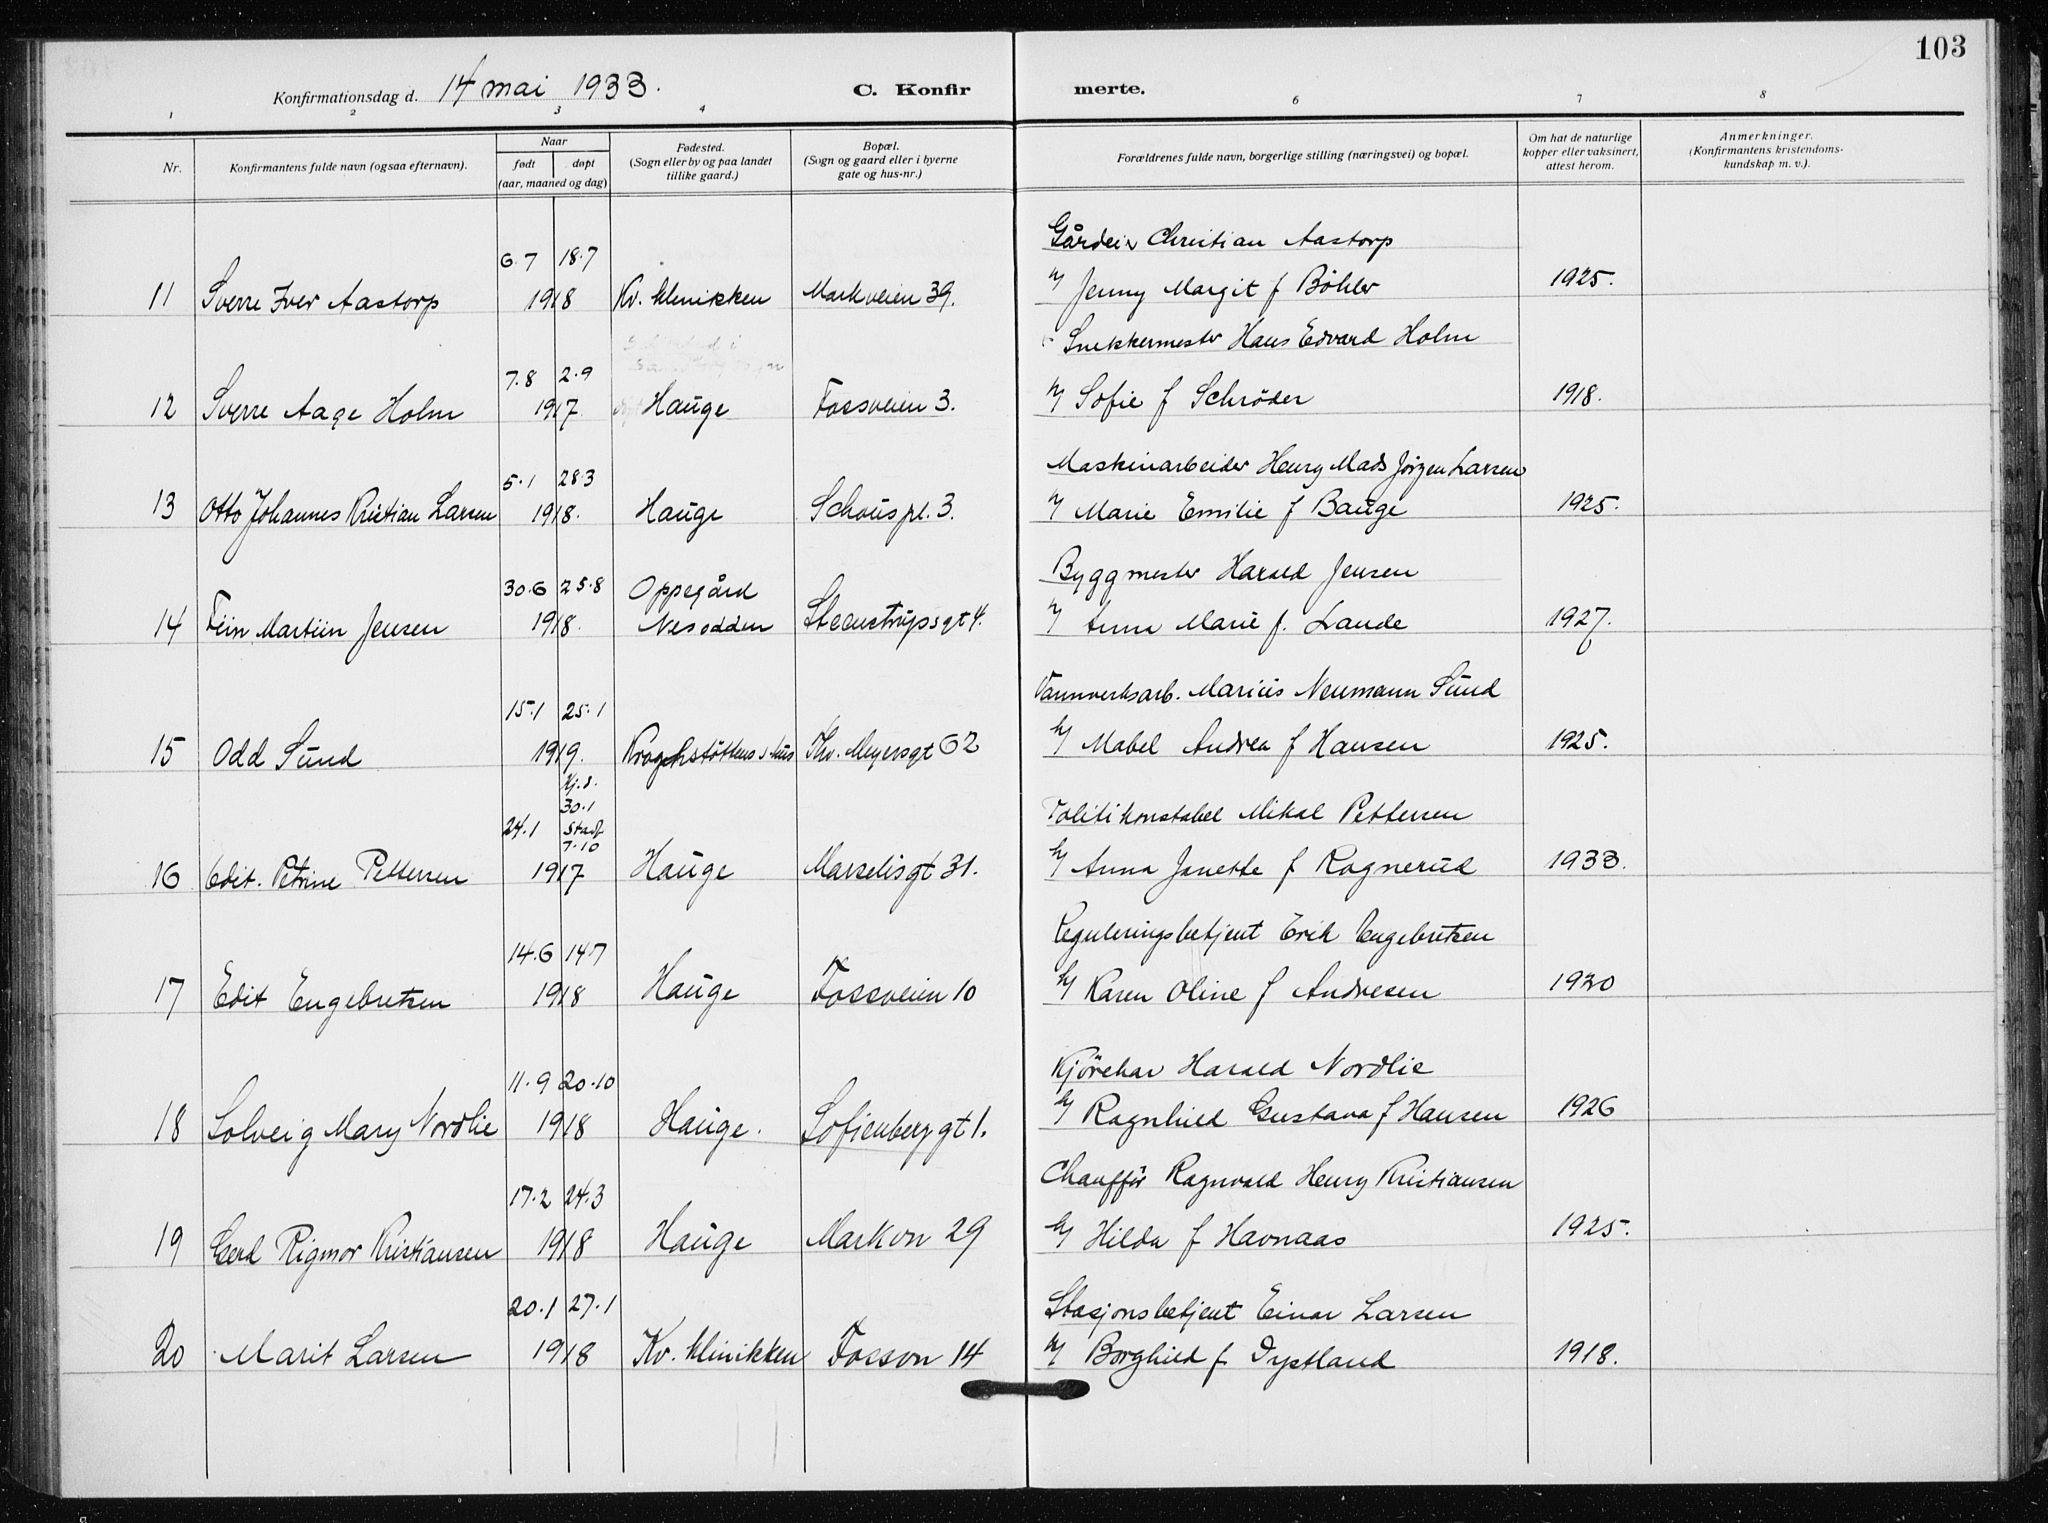 103
Konfirmationsdag d. 14 mai 1933. C. Konfirmerte.
1 2 3 4 6 7 8
Nr. Konfirmantens fulde navn (ogsaa efternavn). Naar født døpt (aar, maaned og dag) Fødested. (Sogn eller by og paa landet tillike gaard.) Bopæl. (Sogn og gaard eller i byerne gate og hus-nr.) Forældrenes fulde navn, borgerlige stilling (næringsvei) og bopæl. Om hat de naturlige kopper eller vaksinert, attest herom. Anmerkninger. (Konfirmantens kristendomskundskap m. v.).
6.7 18.7 Gårdeier Christian Aastorp
11 Sverre Iver Aastorp 1918 Kv. klinikken Markveien 39. h/ Jenny Margit f Böhler 1925.
Snekkermester Hans Edvard Holm
7.8 2.9
12 Sverre Aage Holm 1917. Hauge Fossveien 3. h/ Sofie f Schröder 1918.
5.1 28.3 Maskinarbeider Henry Mads Jörgen Larsen
13 Otto Johannes Kristian Larsen 1918. Hauge Schouspl. 3. h/ Marie Emilie f Bauge 1925.
30.6 25.8 Oppegård Byggmester Harald Jensen
14 Martiin Jensen 1918. Nesodden Steenstrupsgt 4. h/ Anna Marie f. Lande 1927.
15.1 25.1 Vannverksarb. Marius Neumann Sund
15 Odd Sund 1919. Thv. Meyersgt 62 h/ Mabel Andrea f Hansen 1925.
24.1 Kj.d. 30.1 Stadf 7.10 Politikonstabel Mikal Pettersen
16 Edit. Petrine Pettersen 1917 Hauge Marselisgt 31. h/ Anna Janette f Ragnerud 1933.
14.6 14.7 Reguleringsbetjent Erik Engebretsen
17 Edit Engebretsen 1918 Hauge Fossveien 10 h/ Karen Oline f Andresen 1920
11.9 20.10 Kjörekar Harald Nordlie
18 Solveig Mary Nordlie 1918 Hauge. Sofienberggt 1. h/ Ragnhild Gustava f Hansen 1926
17.2 24.3 Chauffør Ragnvald Henry Kristiansen
19 Gerd Rigmor Kristiansen 1918 Hauge Markvn 29 h/ Hilda f Havnaas 1925.
20.1 27.1 Stasjonsbetjent Einar Larsen
20 Marit Larsen 1918 Kv. klinikken Fossvn 14 h/ Borghild f. Dystland 1918.